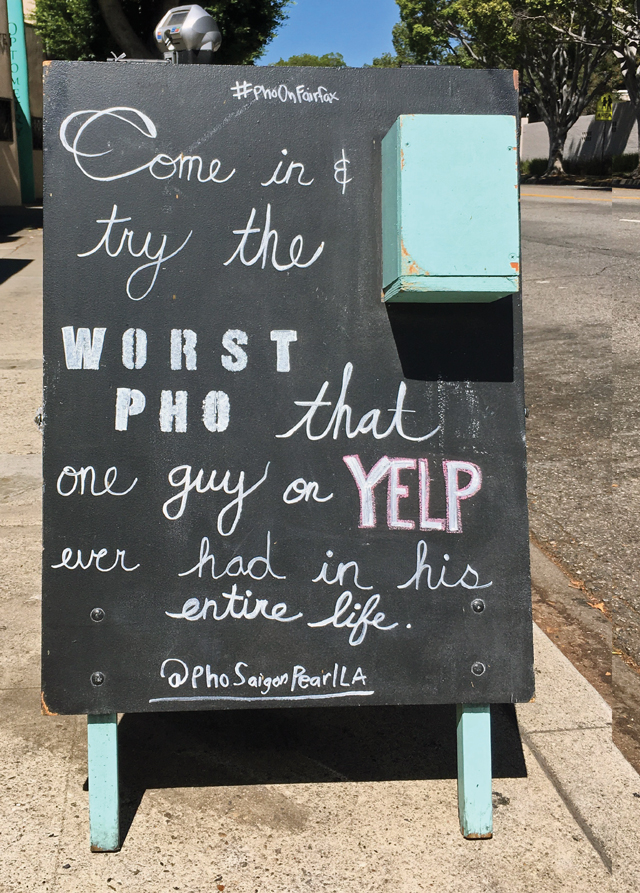 #PhoOnFairfax
Come in &
try the
WORST
PHO that
one guy on YELP
ever had in his
entire life.
@PhoSaigonPearlLA